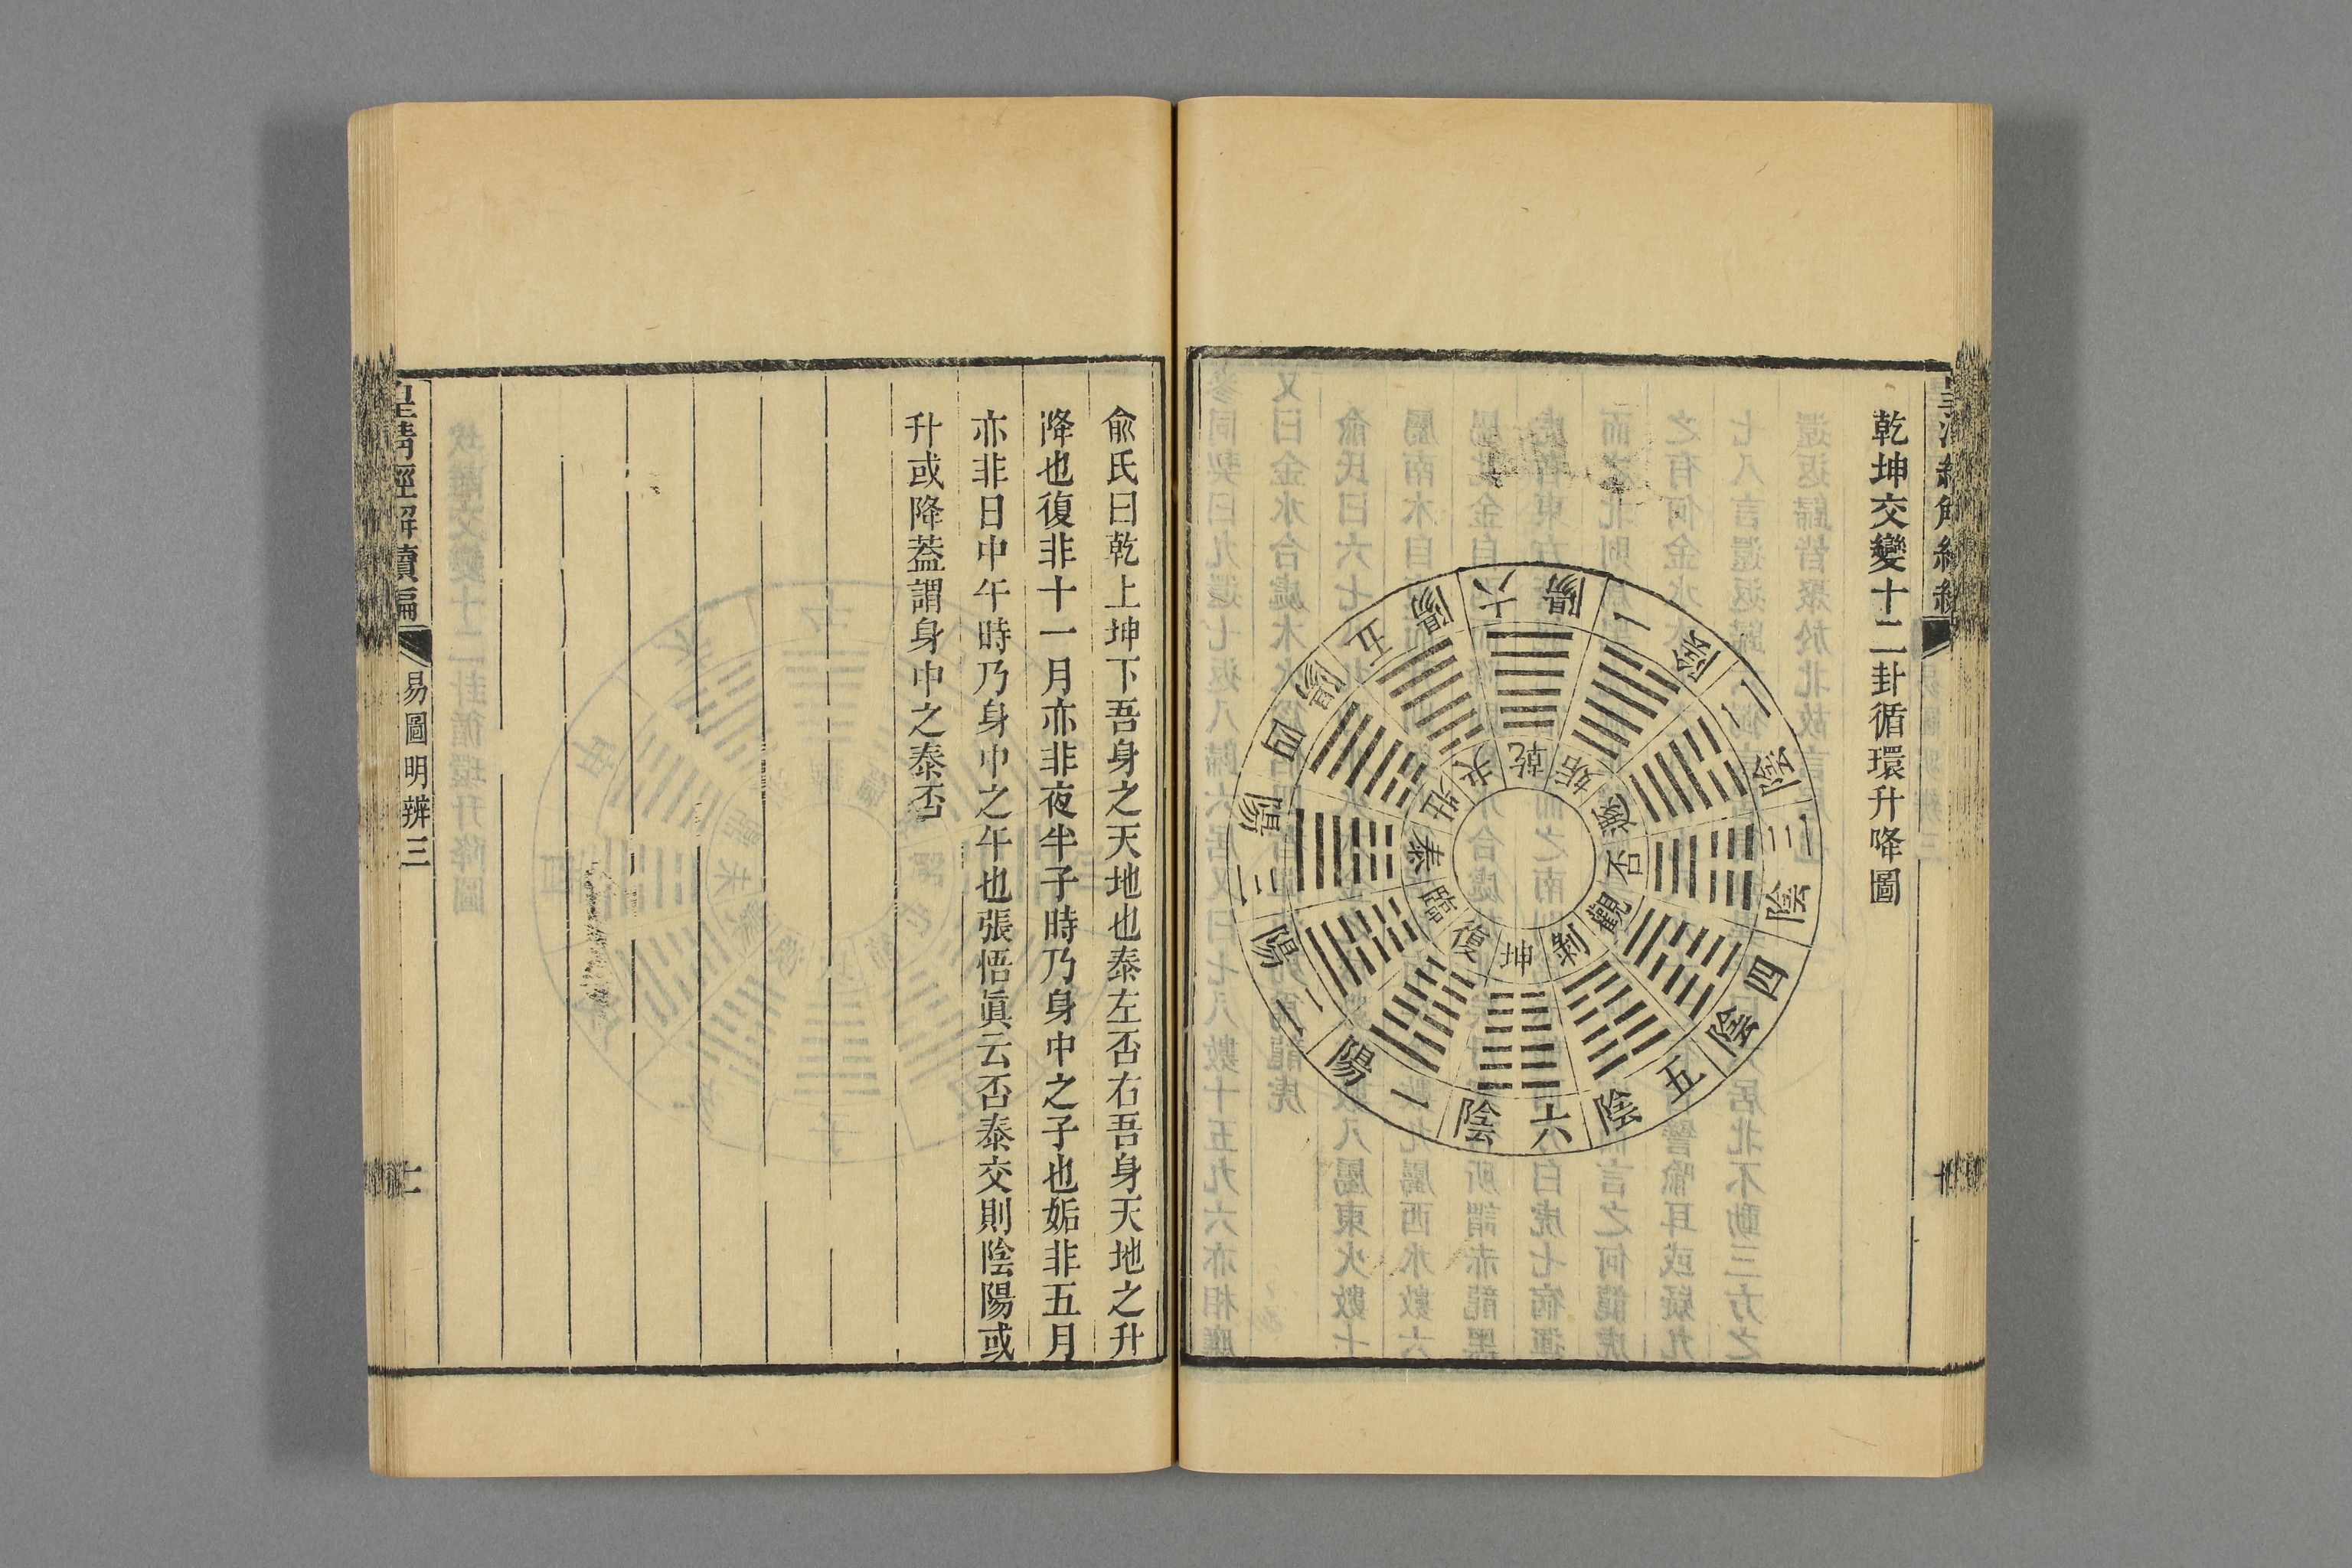 乾坤交變十二卦循環升降圖
六陽
一陰
二陰
三陰
四陰
五陰
六陰
一陽
二陽
三陽
四陽
五陽
乾
姤
遯
否
觀
剝
坤
復
臨
泰
壯
夬
俞氏曰乾上坤下吾身之天地也泰左否右吾身天地之升
降也復非十一月亦非夜半子時乃身中之子也姤非五月
亦非日中午時乃身中之午也張悟眞云否泰交則陰陽或
升或降葢謂身中之泰否
皇清經解續編
易圖明辨三